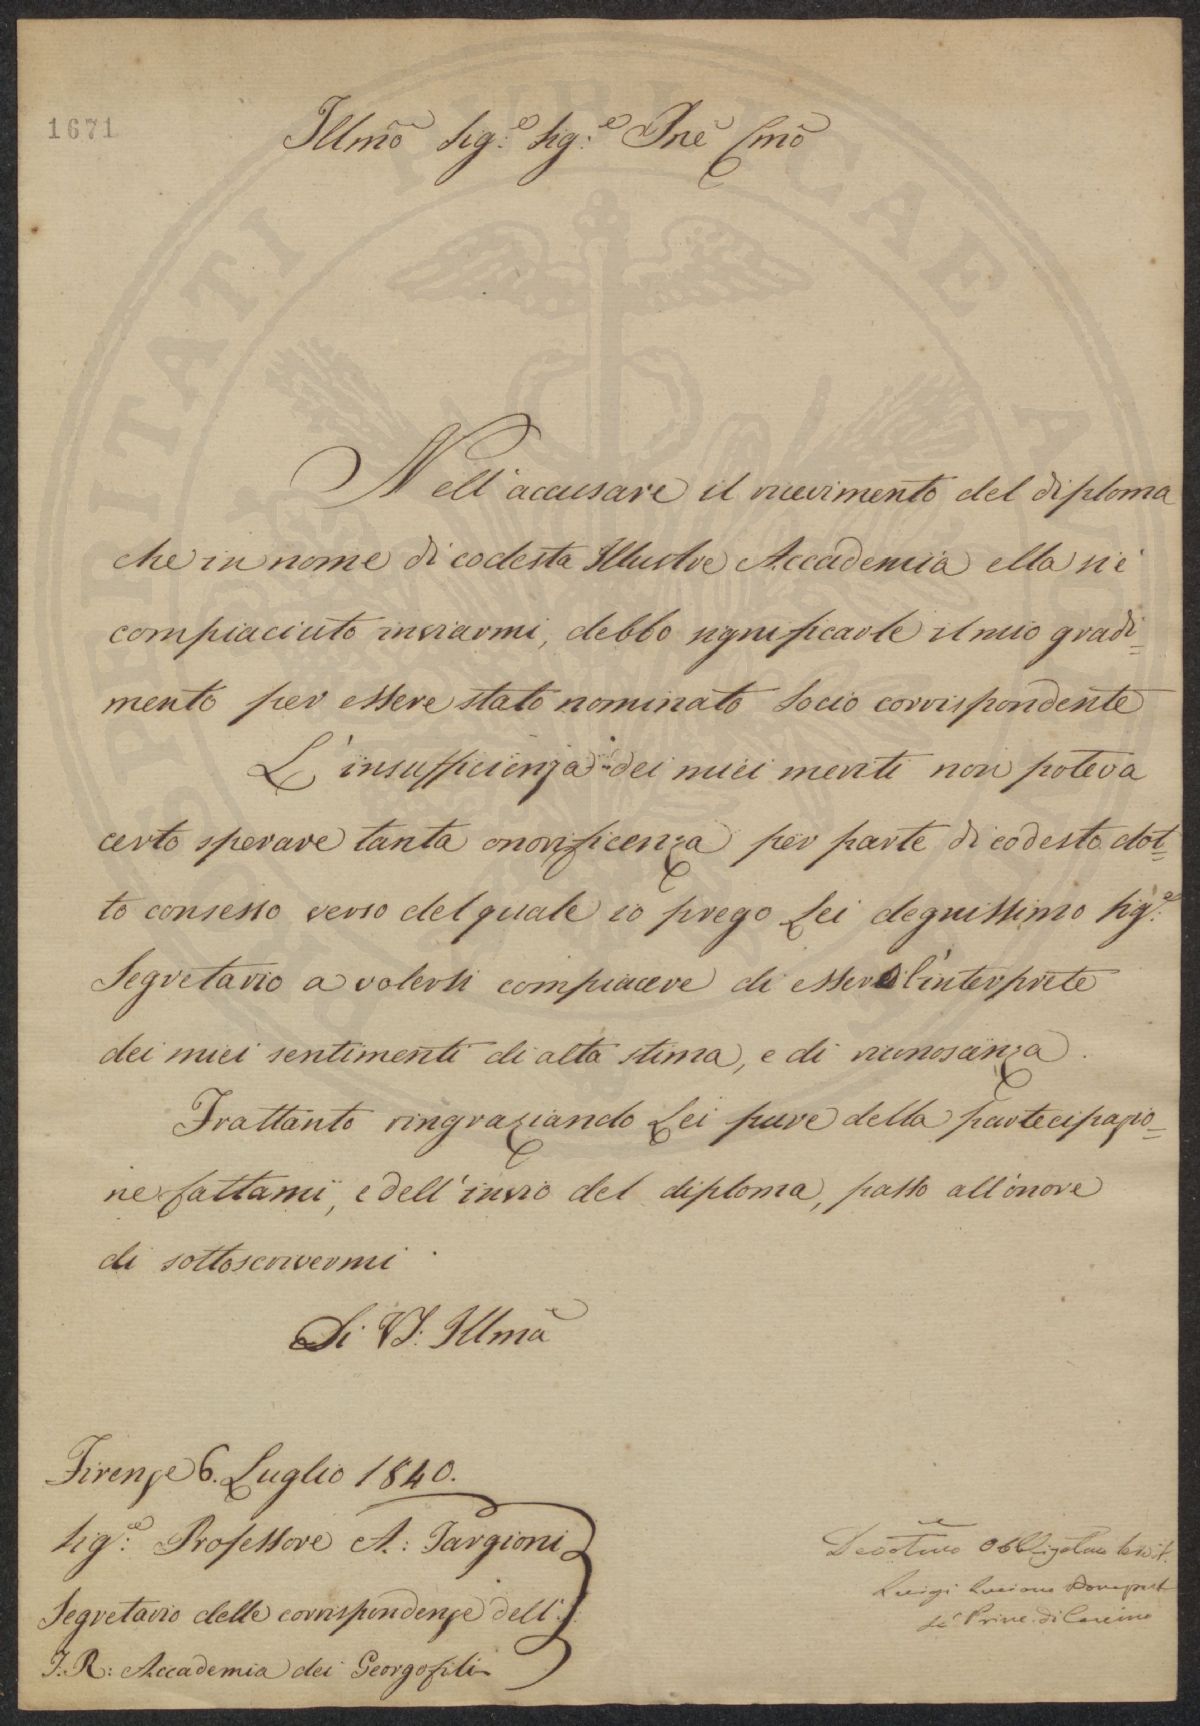 1671
Illmo Sig.e Sig.e Pne Cmo
Nell'accusare il ricevimento del diploma
che in nome di codesta Illustre Accademia ella si è
compiaciuto inviarmi, debbo significarle il mio gradi=
mento per essere stato nominato Socio corrispondente
L'insufficienza dei miei meriti non poteva
certo sperare tanta onorificenza per parte di codesto dot=
to consesso verso del quale io prego Lei degnissimo Sig.e
Segretario a volersi compiacere di essere l'interprete
dei miei sentimenti di alta stima, e di riconoscenza.
Frattanto ringraziando Lei pure della partecipazio=
ne fattami, e dell'invio del diploma, passo all'onore
di sottoscrivermi
Di VS. Illma
Firenze 6. Luglio 1840.
Sig.e Professore A. Targioni
Segretario delle corrispondenze dell'
I. R. Accademia dei Georgofili
Devotmo Obbligatmo
Luigi Luciano Bonapart
Princ. di Canino